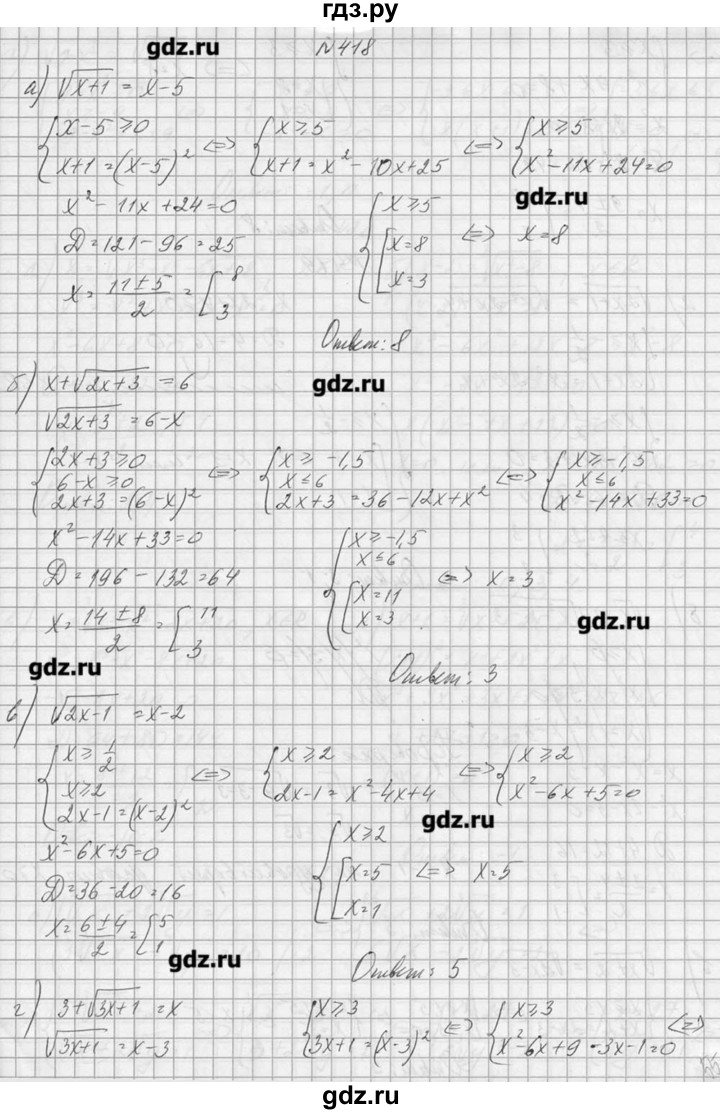 гдз.ру
gdz.ru
№418
а) √(x+1) = x-5
{ x-5⩾0 <=> { x⩾5 <=> { x⩾5
x+1=(x-5)² x+1=x²-10x+25 x²-11x+24=0
gdz.ru
x²-11x+24=0
Д=121-96=25
x= (11±5)/2 = [ 8
3
{ x⩾5
[ x=8 <=> x=8
x=3
Ответ: 8
gdz.ru
б) x+√(2x+3) =6
√(2x+3) =6-x
{ 2x+3⩾0 <=> { x⩾-1,5 <=> { x⩾-1,5
6-x⩾0 x⩽6 x⩽6
2x+3=(6-x)² 2x+3=36-12x+x² x²-14x+33=0
x²-14x+33=0
Д=196-132=64
x= (14±8)/2 = [ 11
3
{ x⩾-1,5
x⩽6
[ x=11 <=> x=3
x=3
gdz.ru
gdz.ru
Ответ: 3
в) √(2x-1) =x-2
{ x⩾1/2 <=> { x⩾2 <=> { x⩾2
x⩾2 2x-1=x²-4x+4 x²-6x+5=0
2x-1=(x-2)²
gdz.ru
x²-6x+5=0
Д=36-20=16
x= (6±4)/2 = [ 5
1
{ x⩾2
[ x=5 <=> x=5
x=1
gdz.ru
Ответ: 5
г) 3+√(3x+1) =x
√(3x+1) =x-3
{ x⩾3 <=> { x⩾3 <=>
3x+1=(x-3)² x²-6x+9-3x-1=0
gdz.ru